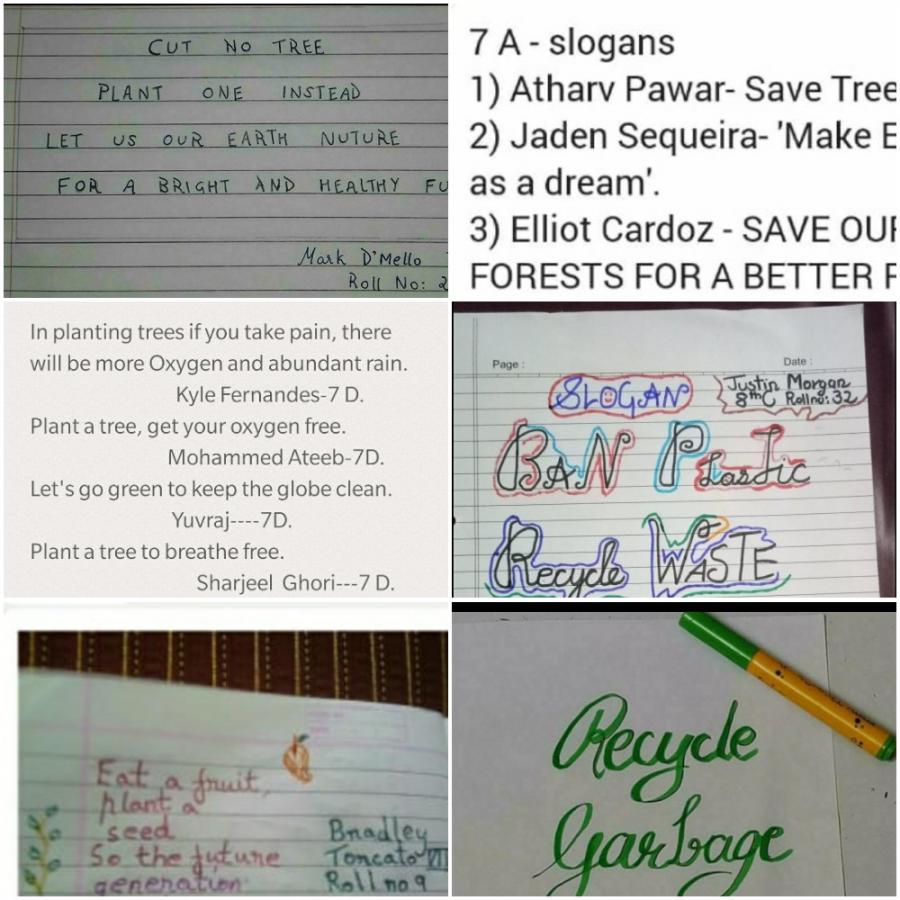 CUT NO TREE
PLANT ONE INSTEAD
LET US OUR EARTH NUTURE
FOR A BRIGHT AND HEALTHY FU
Mark D'Mello
Roll No: 2
7 A - slogans
1) Atharv Pawar- Save Tree
2) Jaden Sequeira- 'Make E
as a dream'.
3) Elliot Cardoz - SAVE OUR
FORESTS FOR A BETTER F
In planting trees if you take pain, there
will be more Oxygen and abundant rain.
Kyle Fernandes-7 D.
Plant a tree, get your oxygen free.
Mohammed Ateeb-7D.
Let's go green to keep the globe clean.
Yuvraj----7D.
Plant a tree to breathe free.
Sharjeel Ghori---7 D.
Page : Date :
SLOGAN
Justin Morgan
8th C Rollno: 32
BAN PLastic
Recycle WASTE
Eat a fruit,
plant a
seed
So the future
generation
Bradley
Toncato VII
Roll no 9
Recycle
Garbage